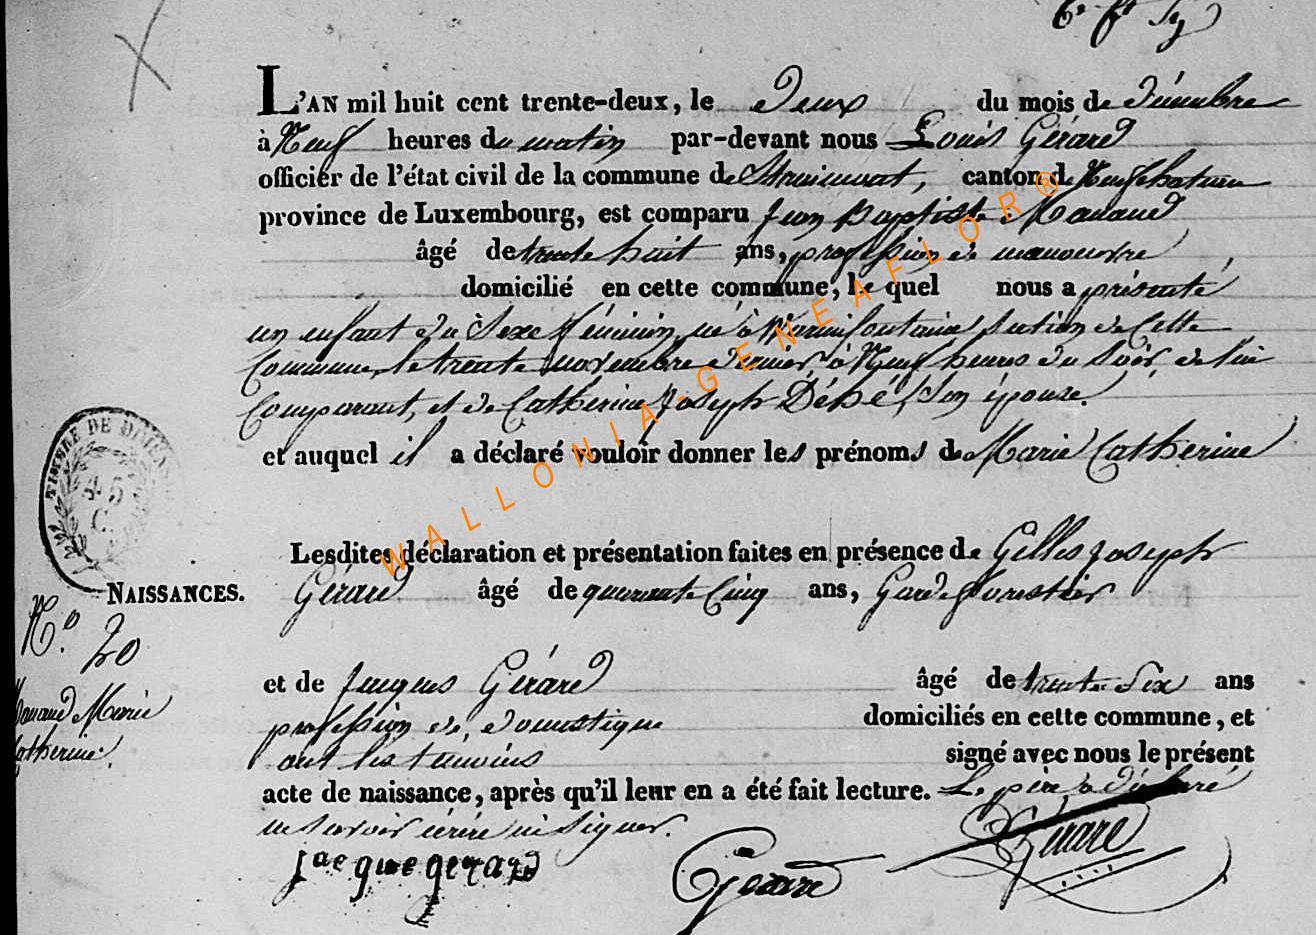 L'AN mil huit cent trente-deux, le Deux du mois de Décembre
à Neuf heures du matin par-devant nous Louis Gérard
officier de l'état civil de la commune de Straimont, canton de Neufchateau
province de Luxembourg, est comparu Jean Baptiste Manand
âgé de trente huit ans, profession de manoeuvre
domicilié en cette commune, le quel nous a présenté
un enfant du Sexe féminin, né à Warmifontaine section de Cette
Commune, le trente novembre dernier, à Neuf heures du Soir, de lui
Comparant, et de Catherine Joseph Déhé, Son épouse.
et auquel il a déclaré vouloir donner les prénoms de Marie Catherine
Lesdites déclaration et présentation faites en présence de Gilles Joseph
Gérard âgé de quarante Cinq ans, Garde forestier
NAISSANCES.
N.º 20
Manand Marie
Catherine.
et de Jacques Gérard âgé de trente Six ans
profession de domestique domiciliés en cette commune, et
ont les temoins signé avec nous le présent
acte de naissance, après qu'il leur en a été fait lecture. Le père a déclaré
ne Savoir écrire ni Signer.
Jacque gerard Gerard Gérard
TIMBRE DE
45
C.
WALLONIA-GENEAFLOR®